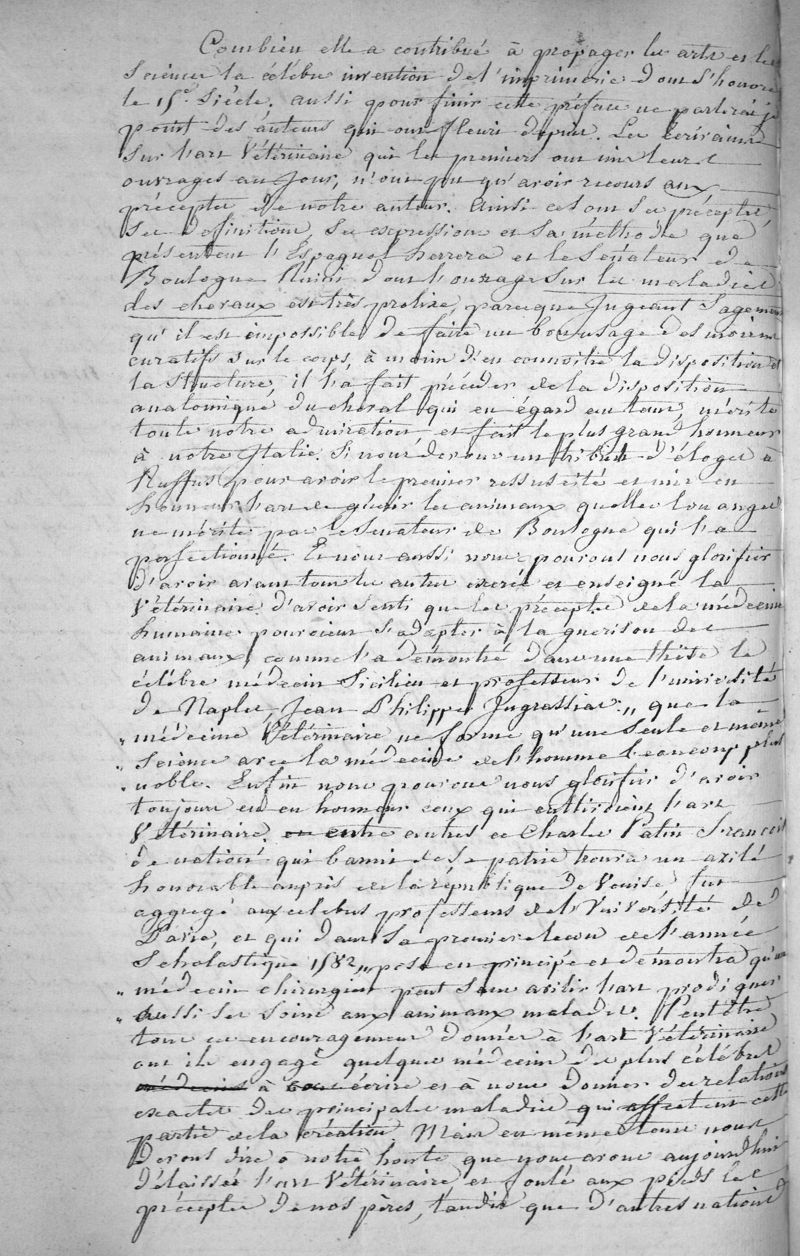 Combien elle a contribué à propager les arts et les
sciences la célèbre invention de l'imprimerie dont s'honore
le 15e Siècle. aussi pour finir cette préface ne parlerai je
point des auteurs qui ont fleuri depuis. Les écrivains
sur l'art Vétérinaire qui les premiers ont mis leurs
ouvrages au Jour, n'ont pu qu'avoir recours aux
préceptes de notre auteur. Ainsi ce sont ses préceptes,
ses definitions, ses expressions et sa méthode que
présentent l'Espagnol herrera et le Sénateur de
Boulogne Ruini dont l'ouvrage sur les maladies
des chevaux est très prolixe, parceque Jugeant Sagement
qu'il est impossible de faire un bon usage des moiens
curatifs sur le corps, à moins d'en connoitre la disposition et
la structure, il l'a fait précéder de la disposition
anatomique du cheval qui eu égard au tems, mérite
toute notre admiration et fait le plus grand honneur
à notre Italie. Si nous devons un tribut d'éloges à
Ruffus pour avoir le premier ressuscité et mis en
honneur l'art de guérir les animaux quelles louanges
ne mérite pas le Senateur de Boulogne qui l'a
perfectionné. Et nous aussi nous pouvons nous glorifier
d'avoir avant tous les autres exercé et enseigné la
Vétérinaire, d'avoir senti que les préceptes de la médecine
humaine pouvoient s'adapter à la guérison des
animaux, comme l'a démontré dans une thèse le
célèbre médecin Sicilien et professeur de l'université
de Naples Jean Philippe Ingrassias „ que la
„ médecine Vétérinaire ne forme qu'une seule et même
„ Science avec la médecine de l'homme beaucoup plus
„ noble. Enfin nous pouvons nous glorifier d'avoir
toujours eu en honneur ceux qui cultivoient l'art
Vétérinaire entre autres ce Charles Patin François
de nation qui banni de sa patrie trouva un azile
honorable auprès de la république de Venise, fut
aggrégé aux celebres professeurs de l'Université de
Pavie, et qui dans sa premier leçon de l'année
Scholastique 1582 „ posa en principe et démontra qu'un
„ médecin chirurgien peut sans avilir l'art prodiguer
„ aussi ses soins aux animaux malades. Peut être
tous ces encouragemens donnés à l'art Vétérinaire
ont ils engagé quelques médecins des plus célèbres
médecins à écrire et à nous donner des relations
exactes des principales maladies qui affectent cette
partie de la création. Mais en même tems nous
devons dire à notre honte que nous avons aujourd'hui
délaissé l'art Vétérinaire et foulé aux pieds les
préceptes de nos pères, tandis que d'autres nations